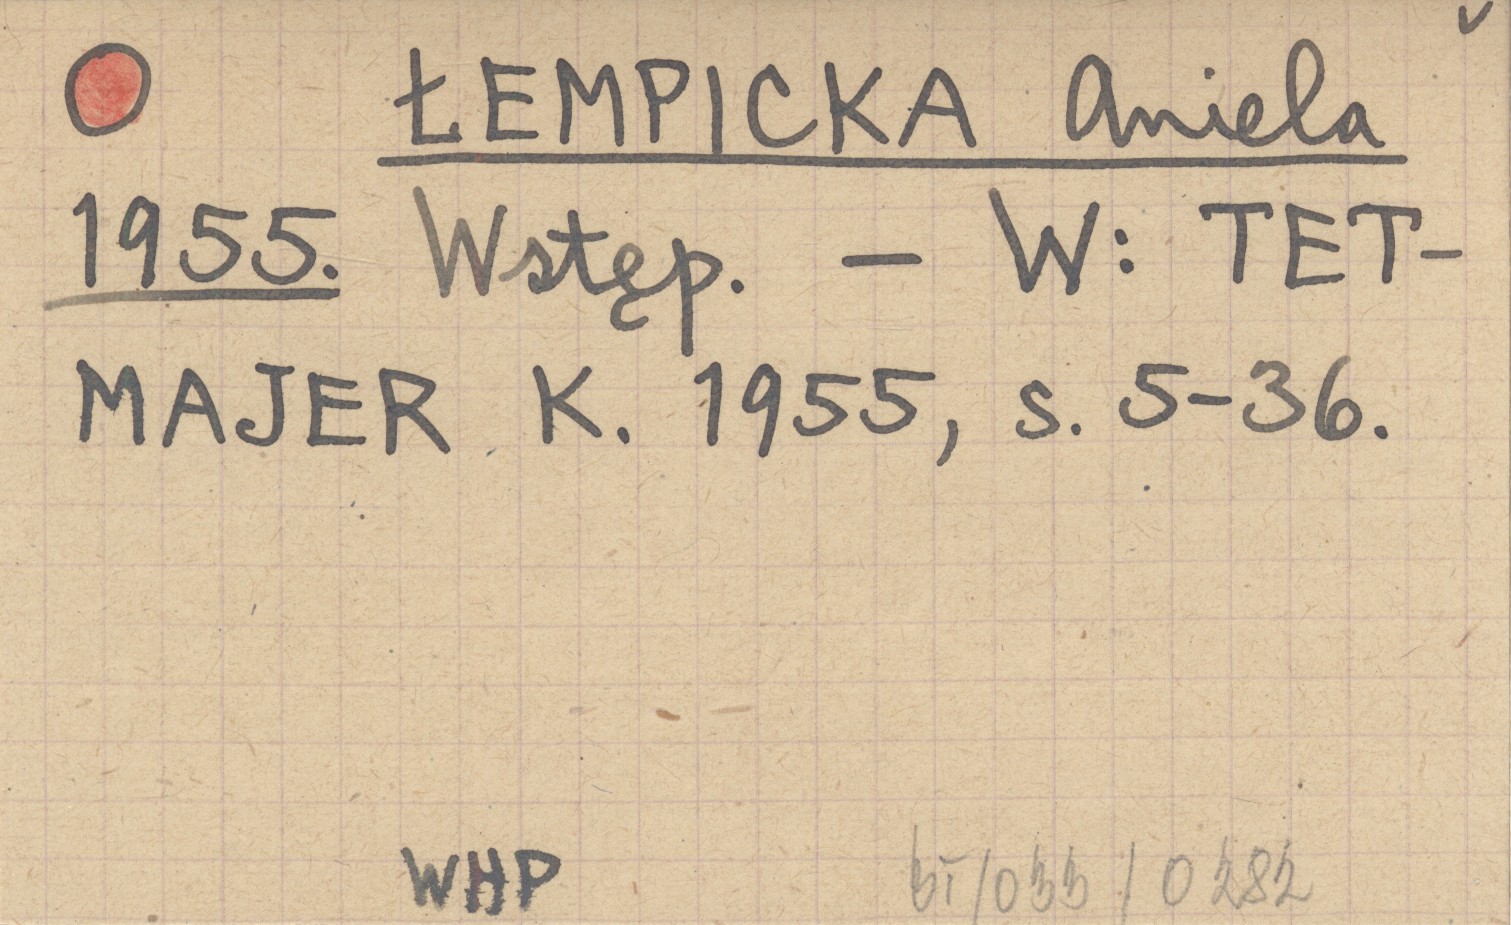 ŁEMPICKA Aniela
1955. Wstęp. – W: TET-
MAJER K. 1955, s. 5-36.
WHP